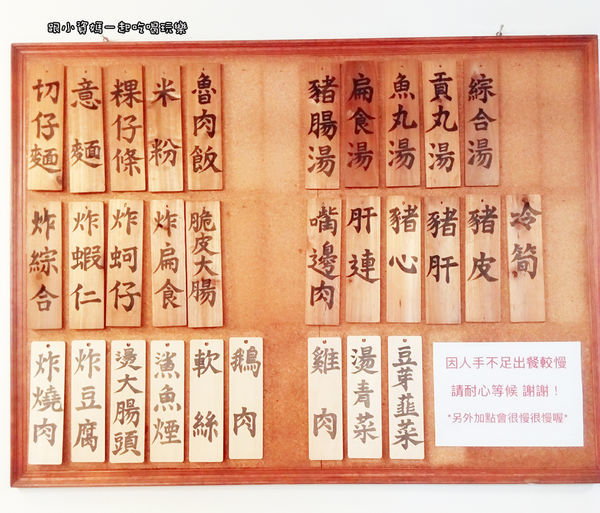 跟小資媽一起吃喝玩樂
切仔麵
意麵
粿仔條
米粉
魯肉飯
豬腸湯
扁食湯
魚丸湯
貢丸湯
綜合湯
炸綜合
炸蝦仁
炸蚵仔
炸扁食
脆皮大腸
嘴邊肉
肝連
豬心
豬肝
豬皮
冷筍
炸燒肉
炸豆腐
燙大腸頭
鯊魚煙
軟絲
鵝肉
雞肉
燙青菜
豆芽韮菜
因人手不足出餐較慢
請耐心等候 謝謝！
*另外加點會很慢很慢喔*